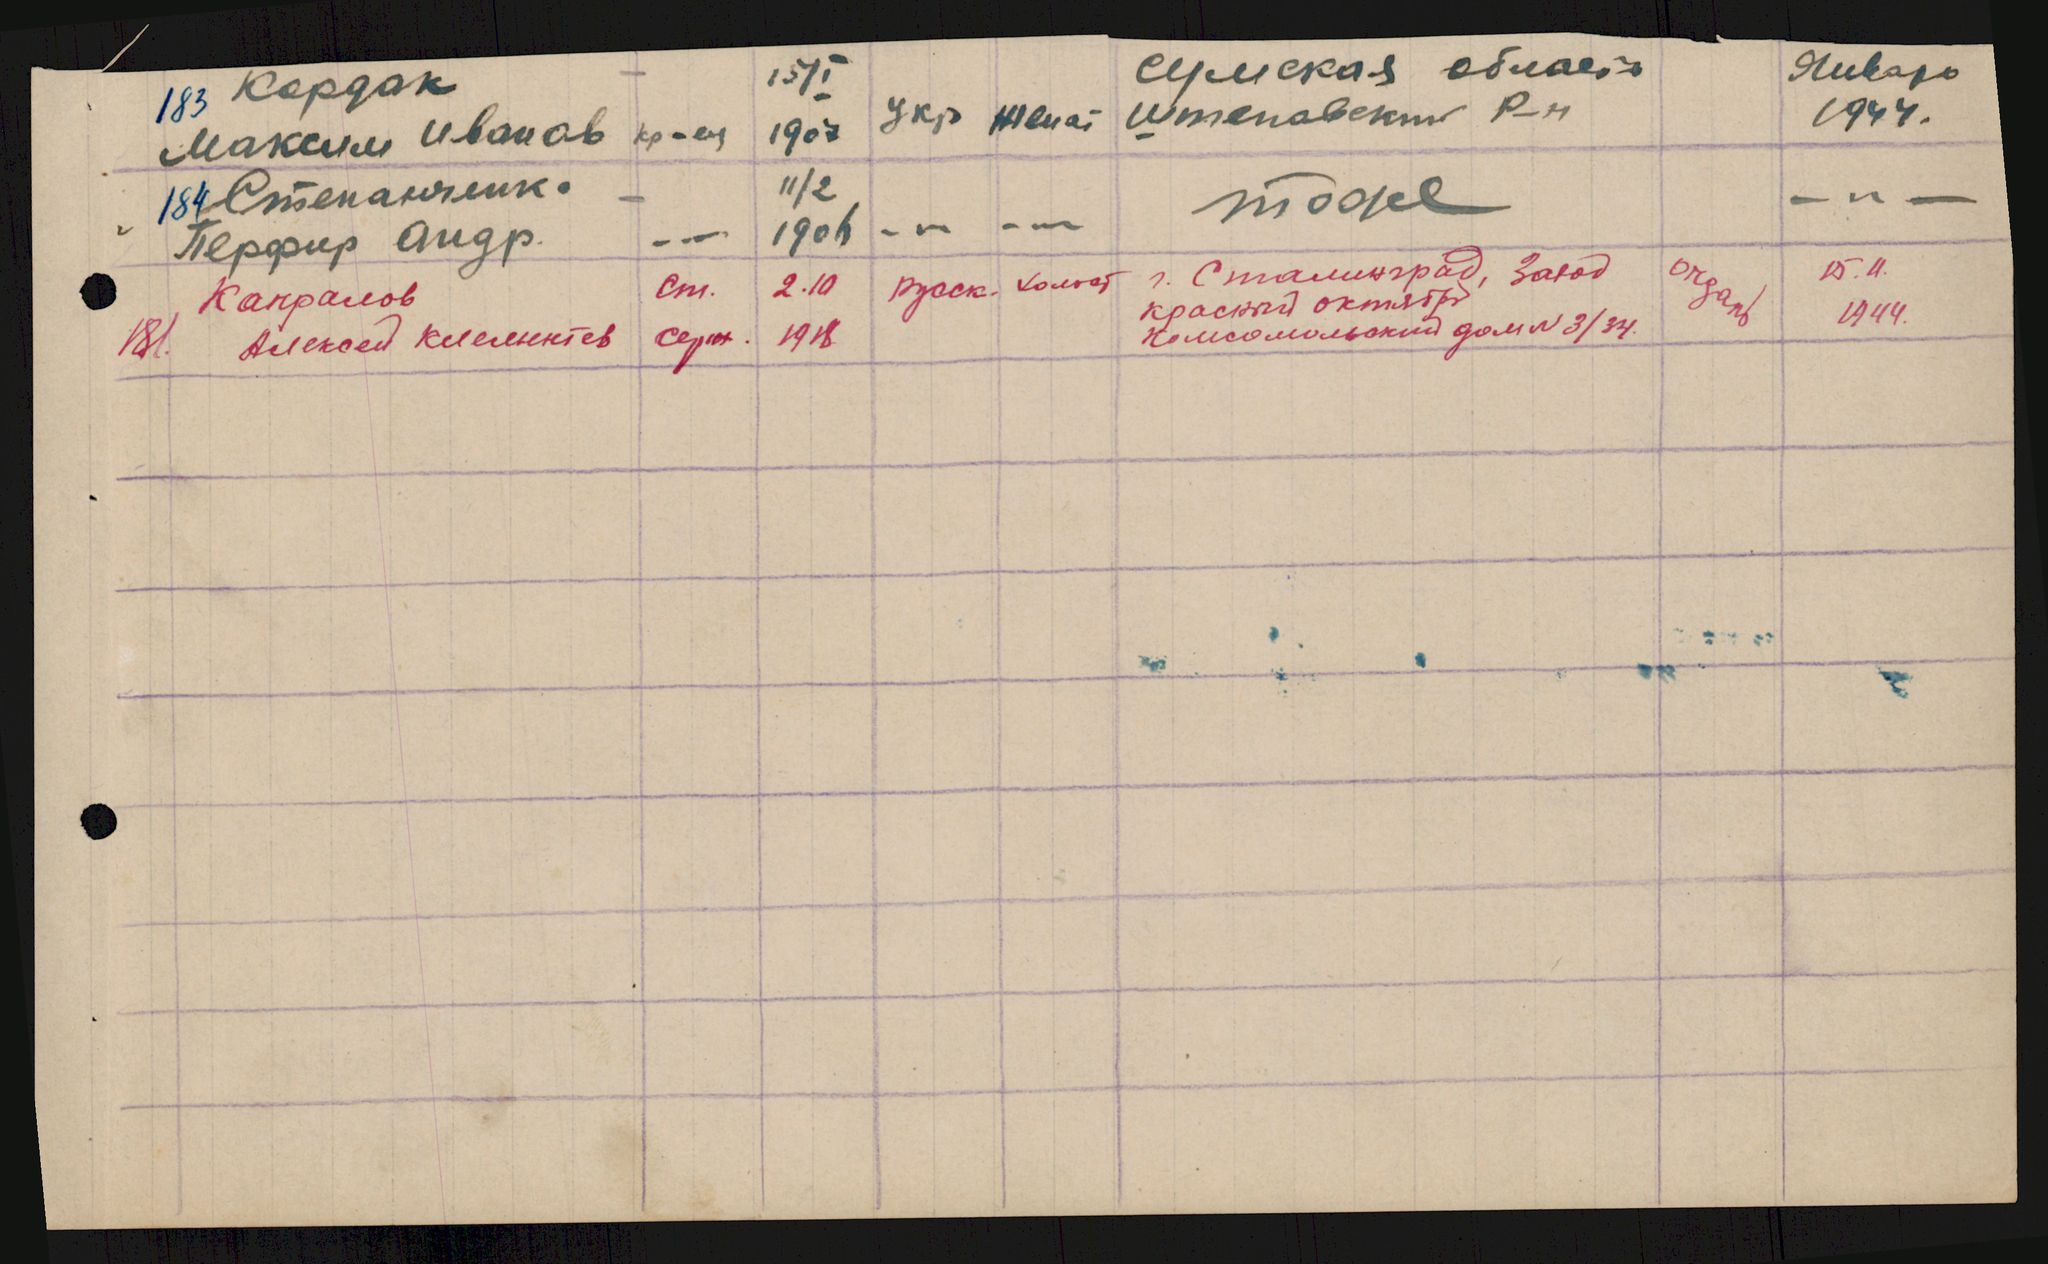 183 Кордак — 15/I Сумская область Январь
Максим Иванов кр-ец 1907 Укр Женат Штеповский Р-н 1944.
184 Степанченк. — 11/2 тоже —〃 —
Перфир Андр. —〃— 1906 —〃— —〃—
Капралов Ст. 2.10 Русск. холост г. Сталинград, Завод 15.II.
красный октябрь
181. Алексей Клементьев Серж. 1918 Комсомольский дом N 3/34. 1944.